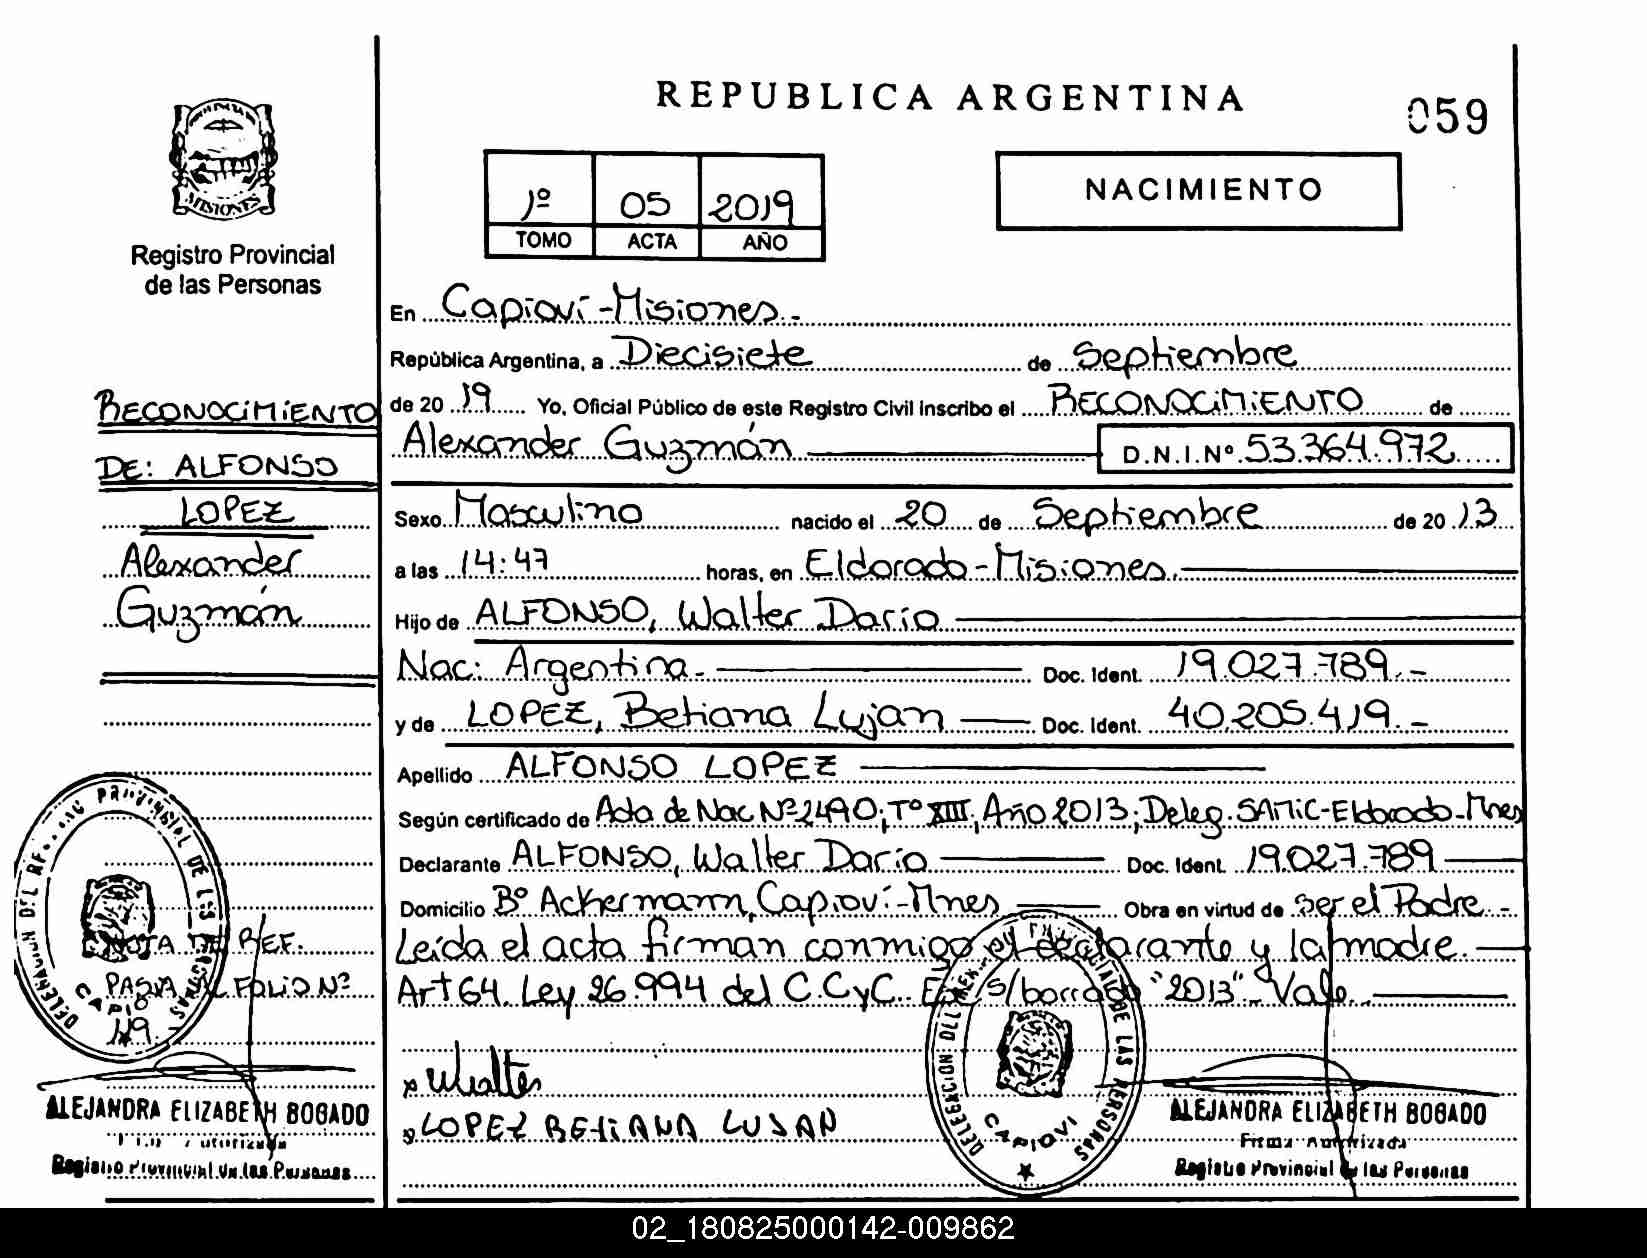 REPUBLICA ARGENTINA
059
MISIONES
Registro Provincial
de las Personas
1º 05 2019
TOMO ACTA AÑO
NACIMIENTO
RECONOCIMIENTO
DE: ALFONSO
LOPEZ
Alexander
Guzmán
En Capioví-Misiones.-
República Argentina, a Diecisiete de Septiembre
de 20 19 Yo, Oficial Público de este Registro Civil inscribo el RECONOCIMIENTO de
Alexander Guzmán D.N.I.Nº 53.364.972
Sexo Masculino nacido el 20 de Septiembre de 20 13
a las 14:47 horas, en Eldorado-Misiones.
Hijo de ALFONSO, Walter Darío
Nac: Argentina.- Doc. Ident. 19.027.789.-
y de LOPEZ, Betiana Lujan Doc. Ident. 40.205.419.-
Apellido ALFONSO LOPEZ
Según certificado de Acta de Nac Nº2490; Tº XIII, Año 2013; Deleg. SAMIC-Eldorado-Mnes
Declarante ALFONSO, Walter Darío Doc. Ident. 19.027.789
Domicilio Bº Ackermann, Capioví-Mnes Obra en virtud de ser el Padre.-
Leída el acta firman conmigo el declarante y la madre.
Art 64. Ley 26.994 del C.CyC. s/borrado "2013". Vale.
Walter
LOPEZ BETIANA LUJAN
NOTA DE REF.
PASA AL FOLIO Nº
119.
DELEGACION DEL PROVINCIAL DE LAS PERSONAS
CAPIOVI
ALEJANDRA ELIZABETH BOGADO
Registro Provincial de las Personas
DELEGACION DEL PROVINCIAL DE LAS PERSONAS
CAPIOVI
ALEJANDRA ELIZABETH BOGADO
Firma Autorizada
Registro Provincial de las Personas
02_180825000142-009862